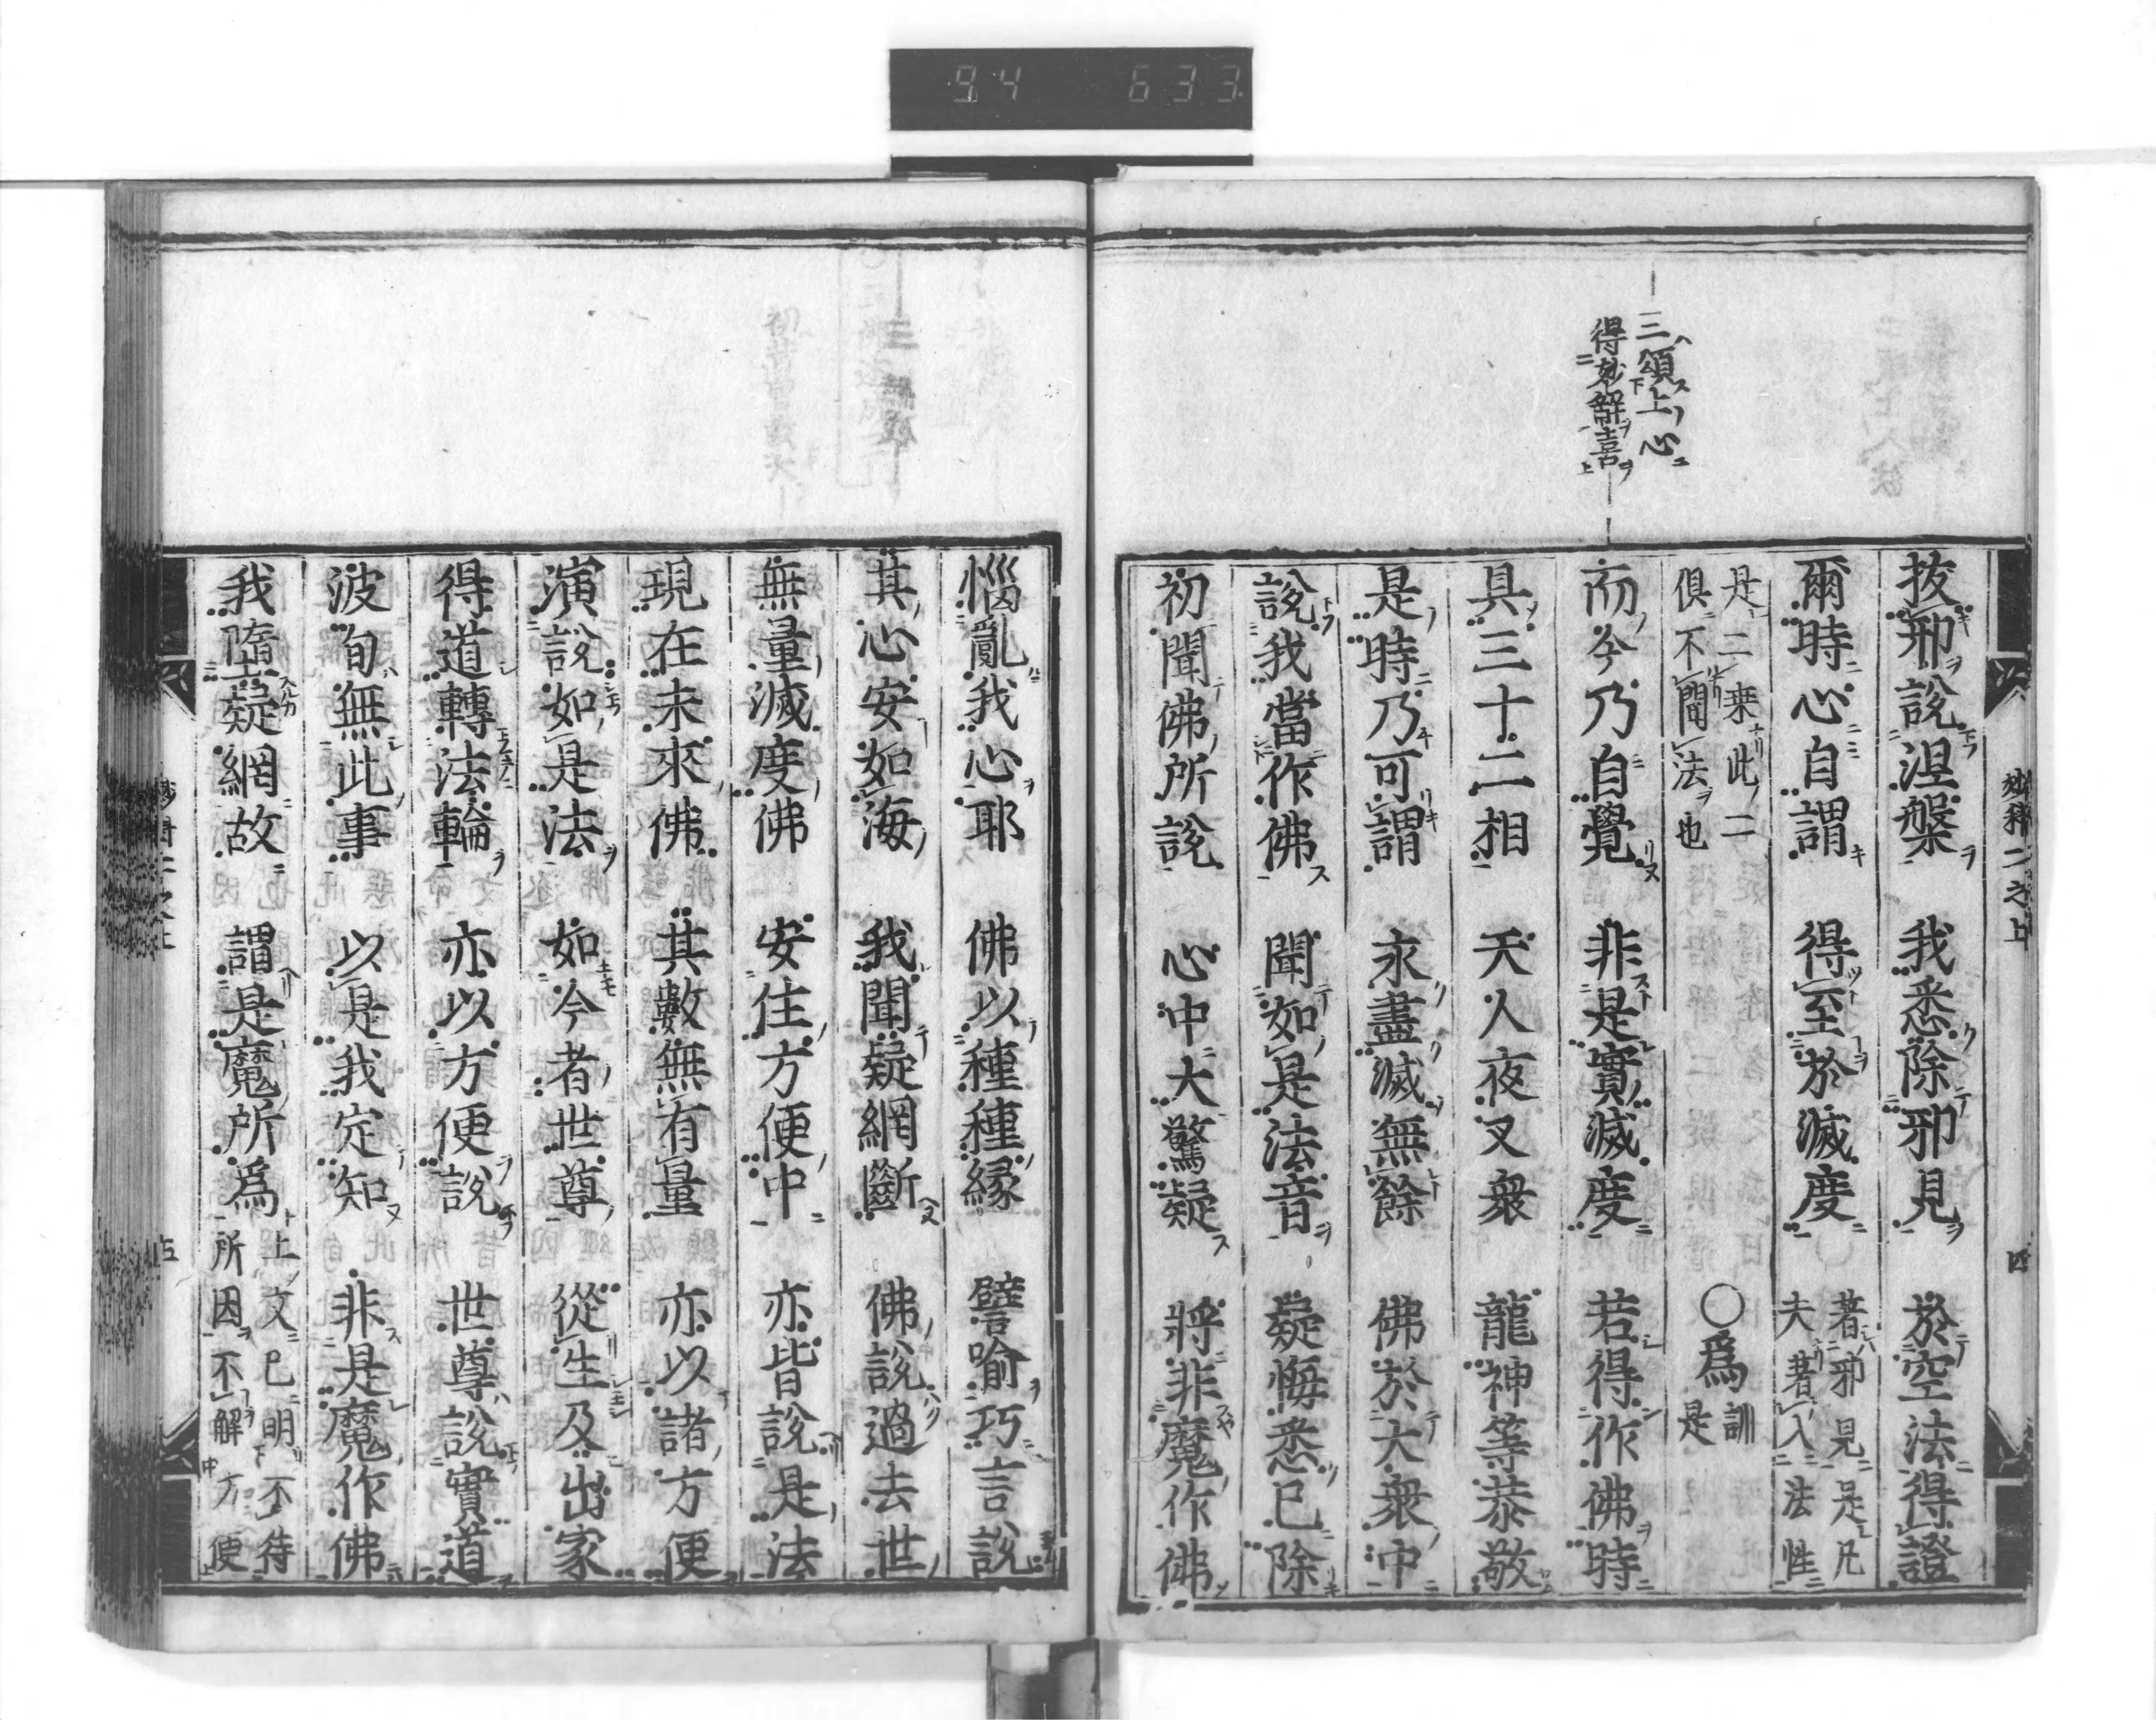 94 633
三頌上心
得妙解喜
拔邪說涅槃 我悉除邪見 於空法得證
爾時心自謂 得至於滅度 著邪見是凡
夫著入法性
是二乗此二
俱不間法也 ○爲訓
是
而今乃自覺 非是實滅度 若得作佛時
具三十二相 天人夜叉衆 龍神等恭敬
是時乃可謂 永盡滅無餘 佛於大衆中
說我當作佛 聞如是法音 疑悔悉已除
初聞佛所說 心中大驚疑 將非魔作佛
四
惱亂我心耶 佛以種種縁 譬喻巧言說
其心安如海 我聞疑網斷 佛說過去世
無量滅度佛 安住方便中 亦皆說是法
現在未來佛 其數無有量 亦以諸方便
演說如是法 如今者世尊 從生及出家
得道轉法輪 亦以方便說 世尊說實道
波旬無此事 以是我定知 非是魔作佛
我墮疑網故 謂是魔所爲 上文已明不待
所因不解方便
五